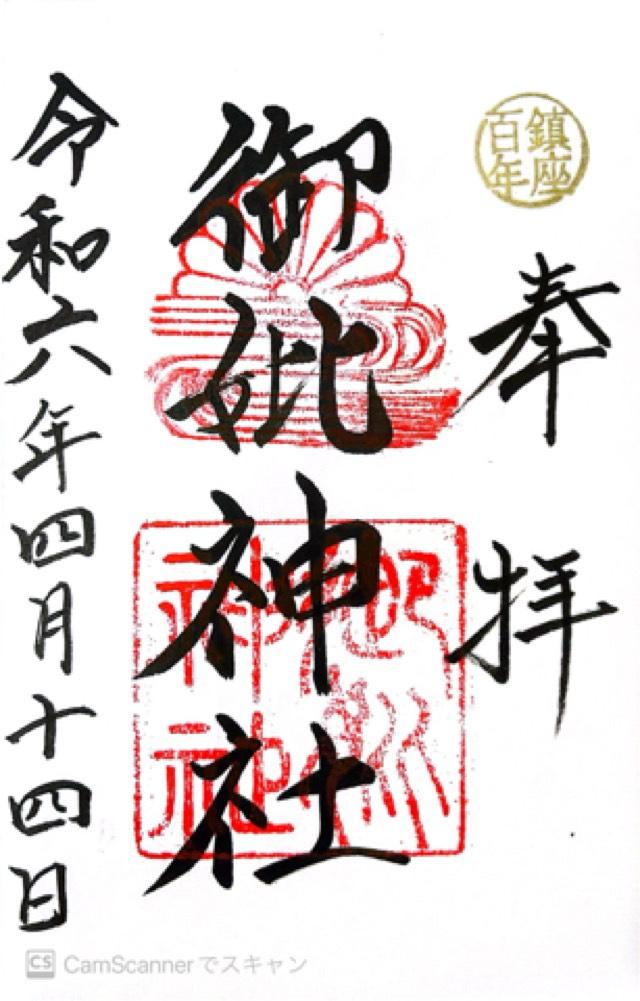 鎮座
百年
奉拝
御妣神社
令和六年四月十四日
CS CamScannerでスキャン